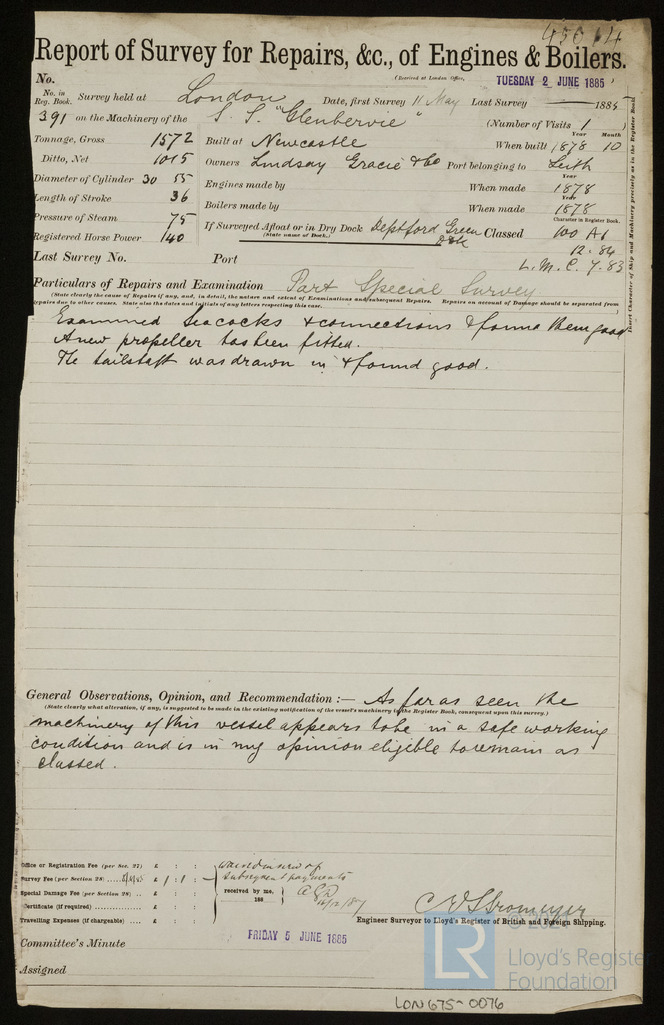 45014
Report of Survey for Repairs, &c., of Engines & Boilers.
(Received at London Office, TUESDAY 2 JUNE 1885)
No.
No. in Reg. Book. Survey held at London Date, first Survey 11 May Last Survey 1885
391 on the Machinery of the S. S. "Glenbervie" (Number of Visits 1)
Tonnage, Gross 1572 Built at Newcastle When built Year 1878 Month 10
Ditto, Net 1015 Owners Lindsay Gracie & Co Port belonging to Leith
Diameter of Cylinder 30 55 Engines made by When made Year 1878
Length of Stroke 36 Boilers made by When made Year 1878
Pressure of Steam 75 If Surveyed Afloat or in Dry Dock Deptford Green Dock Classed Character in Register Book. 100 A1
(State name of Dock.)
Registered Horse Power 140
12.84
Last Survey No. Port L.M.C. 7.83
Insert Character of Ship and Machinery precisely as in the Register Book.
Particulars of Repairs and Examination Part Special Survey
(State clearly the cause of Repairs if any, and, in detail, the nature and extent of Examinations and subsequent Repairs. Repairs on account of Damage should be separated from
repairs due to other causes. State also the dates and initials of any letters respecting this case.
Examined seacocks & connections & found them good
A new propeller has been fitted.
The tailshaft was drawn in & found good.
General Observations, Opinion, and Recommendation :— As far as seen the
(State clearly what alteration, if any, is suggested to be made in the existing notification of the vessel's machinery in the Register Book, consequent upon this survey.)
machinery of this vessel appears to be in a safe working
condition and is in my opinion eligible to remain as
classed.
Office or Registration Fee (per Sec. 27) £ : :
Survey Fee (per Section 28) £ 1 : 1 :
Special Damage Fee (per Section 28) £ : :
Certificate (if required) £ : :
Travelling Expenses (if chargeable) £ : :
subsequent payments
received by me,
188
C E Stromeyer
Engineer Surveyor to Lloyd's Register of British and Foreign Shipping.
Committee's Minute FRIDAY 5 JUNE 1885
Assigned
LR
Lloyd's Register
Foundation
LON675-0076